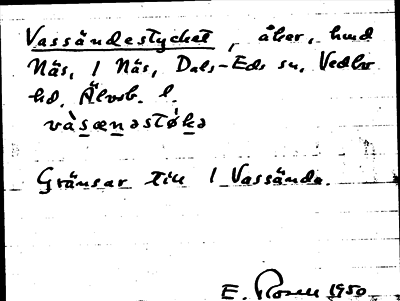 Vassändestycket, åker, hmd
Näs, 1 Näs, Dals-Eds sn, Vedbo
hd, Älvsb. l.
vàsænəstøkə
Gränsar till 1 Vassända.
E. Rosell 1950